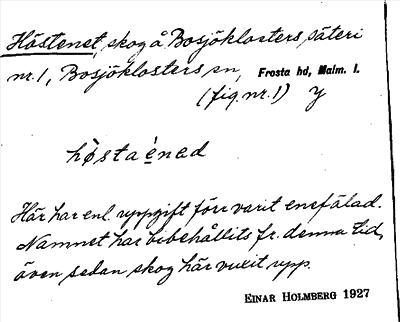 Hästenet, skog å Bosjöklosters säteri
nr. 1, Bosjöklosters sn, Frosta hd, Malm. l.
(fig. nr. 1) y
Här har enl. uppgift förr varit enefälad.
Namnet har bibehållits fr. denna tid,
även sedan skog här vuxit upp.
EINAR HOLMBERG 1927